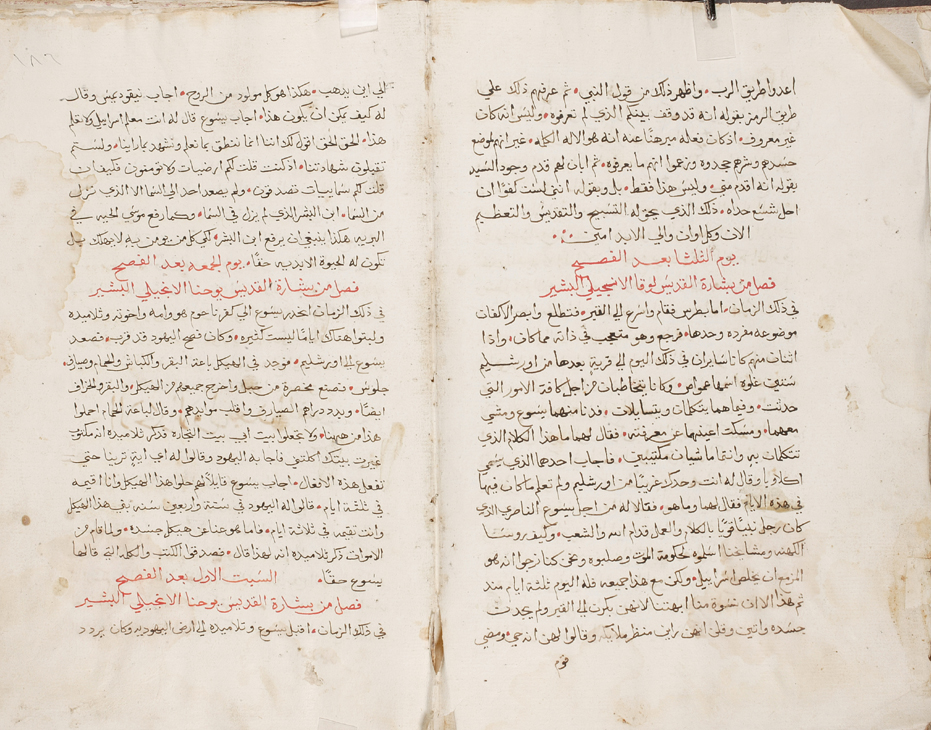 اعدوا طريق الرب • واظهر ذلك من قول النبي • ثم عرفهم ذلك علي
طريق الرمز بقوله انه قد وقف بينكم الذي لم تعرفوه • وليس انه كان
غير معروف • اذ كان فعله مبرهنًا عنه انه هو الاله الكلمه • غير انهم لموضع
حسدهم وشرهم جحدوه وزعموا انهم ما يعرفوه • ثم ابان لهم قدم وجود السيد
بقوله انه اقدم مني • وليس هذا فقط • بل وبقوله انني لست كفوًا ان
احل شسع حذاه • ذلك الذي يحق له التسبيح والتقديس والتعظيم
الان وكل اوان والي الابد امين
يوم الثلثا بعد الفصح
فصل من بشارة القديس لوقا الانجيلي البشير
في ذلك الزمان • اما بطرس فقام واسرع الي القبر • فتطلع وابصر الاكفان
موضوعه مفرده وحدها • فرجع وهو متعجب في ذاته مما كان • واذا
اثنان منهم كانا سايران في ذلك اليوم الي قرية بعدها من اورشليم
ستين غلوه اسمها عمواص • وكانا يتخاطبان من اجل كافة الامور التي
حدثت • وفيما هما يتكلمان ويتسايلان • فدنا منهما يسوع ومشي
معهما • ومسكت اعينهما عن معرفته • فقال لهما ما هذا الكلام الذي
تتكلمان به وانتما ماشيان مكتيبين • فاجاب احدهما الذي يسمي
اكلاوبا وقال له انت وحدك غريبًا من اورشليم ولم تعلم ما كان فيها
في هذه الايام فقال لهما وما هو • فقالا له من اجل يسوع الناصري الذي
كان رجل نبيًا قويًا بالكلام والعمل قدام الله والشعب • وكيف روسا
الكهنه ومشايخنا اسلموه لحكومة الموت وصلبوه ونحن كنا نرجوا انه هو
المزمع ان يخلص اسراييل • ولكن مع هذا جميعه فله اليوم ثلثة ايام منذ
تم هذا الا ان نسوة منا ابهتننا لانهن بكرن الي القبر ولم يجدن
جسده واتين وقلن انهن راين منظر ملايكه وقالوا لهن انه حي • ومضي
قوم
الي اين يذهب • هكذا هو كل مولود من الروح • اجاب نيقوديمس وقال
له كيف يمكن ان يكون هذا • اجاب يسوع قال له انت معلم اسراييل ولا تعلم
هذا • الحق الحق اقول لك اننا انما ننطق بما نعلم ونشهد بما راينا • ولستم
تقبلون شهادتنا • ان كنت قلت لكم ارضيات ولا تومنون فكيف ان
قلت لكم سماييات تصدقون • ولم يصعد احد الي السما الا الذي نزل
من السما • ابن البشر الذي لم يزل في السما • وكما رفع موسي الحيه في
البريه هكذا ينبغي ان يرفع ابن البشر • لكي كل من يومن به لا يهلك بل
تكون له الحيوة الابديه حقًا • يوم الجمعه بعد الفصح
فصل من بشارة القديس يوحنا الانجيلي البشير
في ذلك الزمان انحدر يسوع الي كفرناحوم هو وامه واخوته وتلاميذه
ولبثوا هناك ايامًا ليست كثيره • وكان فصح اليهود قد قرب • فصعد
يسوع الي اورشليم • فوجد في الهيكل باعة البقر والكباش والحمام وصيارف
جلوس • فصنع مخصرة من حبل واخرج جميعهم من الهيكل • والبقر والخراف
ايضًا • وبدد دراهم الصيارف واقلب موايدهم • وقال لباعة الحمام احملوا
هذا من ههنا • ولا تجعلوا بيت ابي بيت التجاره فذكر تلاميذه انه مكتوب
غيرت بيتك اكلتني فاجابه اليهود وقالوا له اي اية ترينا حتي
تفعل هذه الافعال • اجاب يسوع قايلًا لهم حلوا هذا الهيكل وانا اقيمه
في ثلثة ايام • قالوا له اليهود في ستة واربعون سنه بني هذا الهيكل
وانت تقيمه في ثلاثة ايام • فاما هو عنا عن هيكل جسده • ولما قام من
الاموات ذكر تلاميذه انه لهذا قال • فصدقوا الكتب والكلمه التي قالها
يسوع حقًا • السبت الاول بعد الفصح
فصل من بشارة القديس يوحنا الانجيلي البشير
في ذلك الزمان • اقبل يسوع وتلاميذه الي ارض اليهوديه وكان يردد